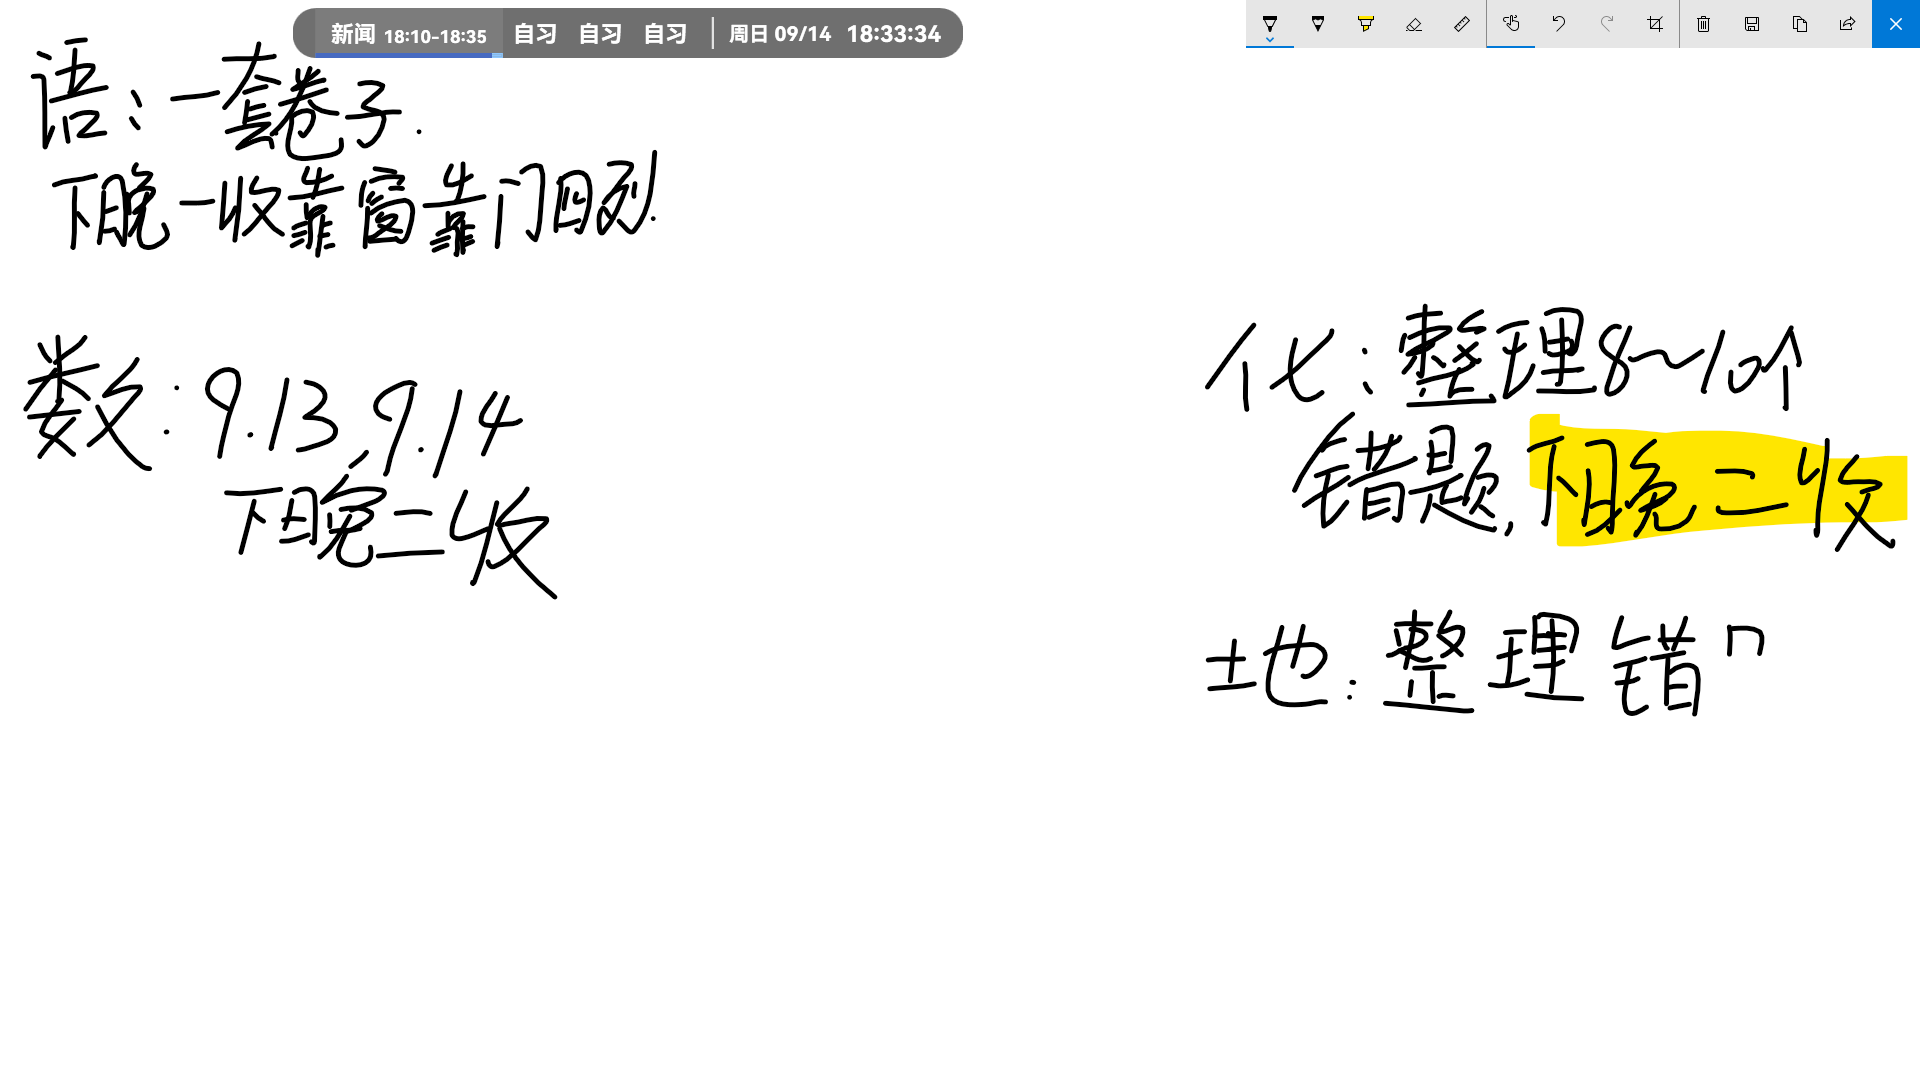 新闻 18:10-18:35 自习 自习 自习 周日 09/14 18:33:34
语：一套卷子.
下晚一收靠窗靠门四列.
数：9.13,9.14
下晚二收
化：整理8~10个
错题,下晚二收
地：整理错